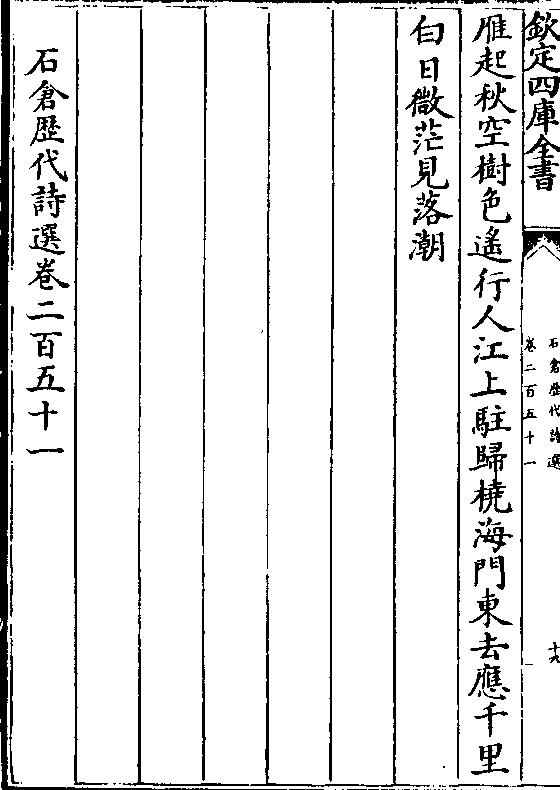 欽定四庫全書
石倉歴代詩選
卷二百五十一
十九
雁起秋空樹色遙行人江上駐歸橈海門東去應千里
白日微茫見落潮
石倉歴代詩選卷二百五十一